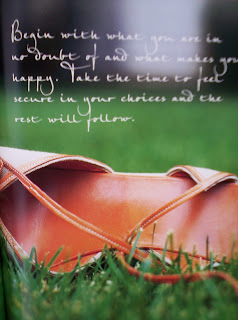 Begin with what you are in
no doubt of and what makes you
happy. Take the time to feel
secure in your choices and the
rest will follow.